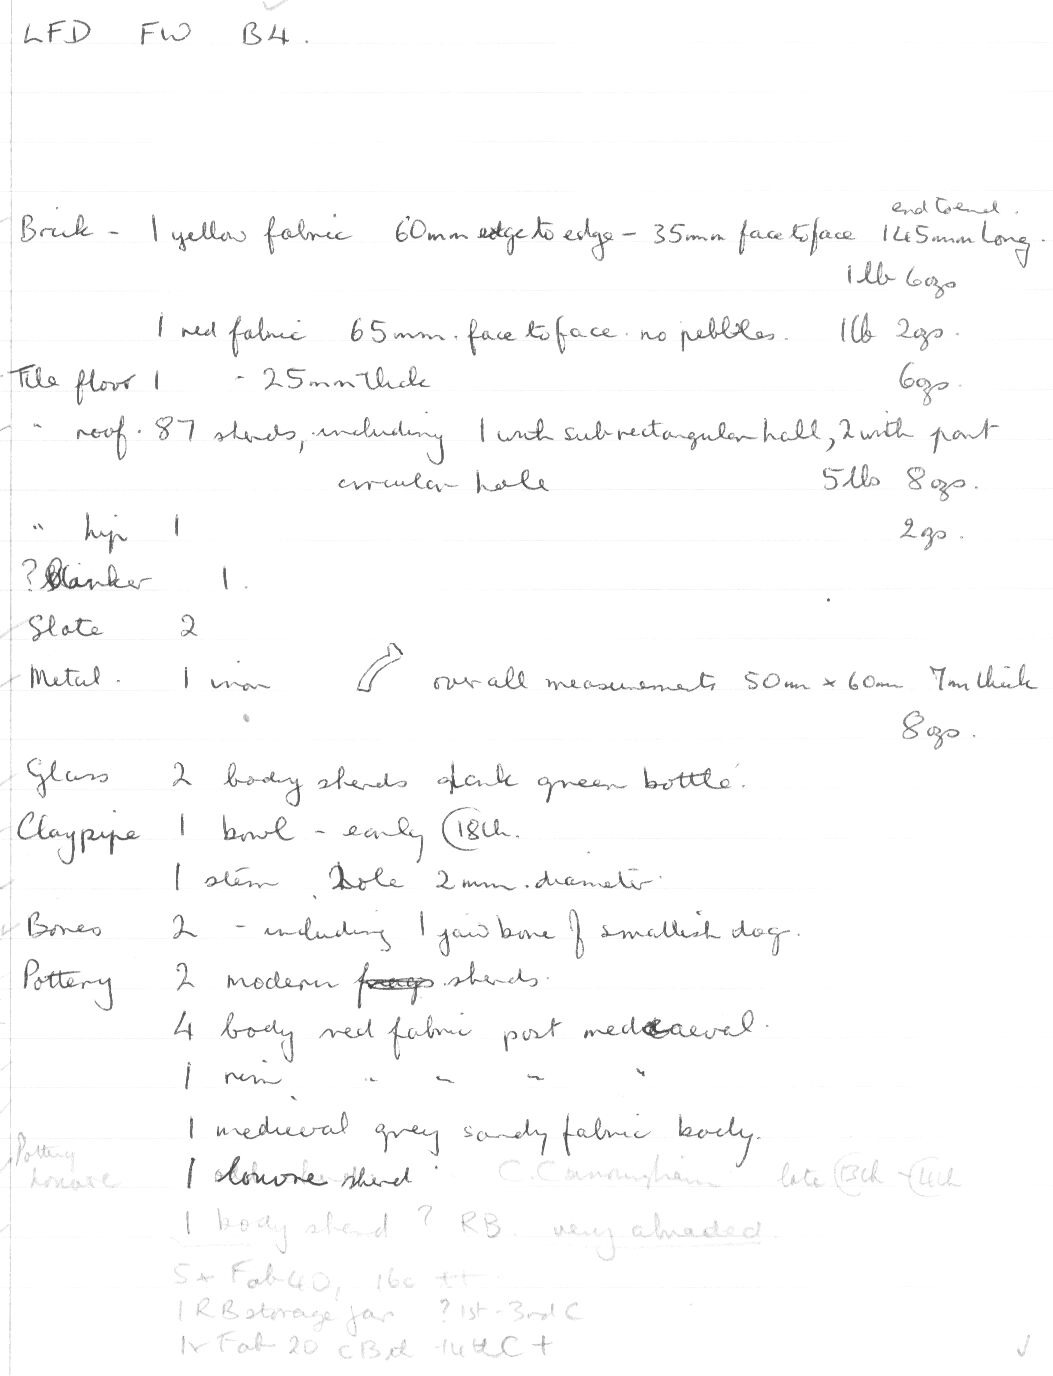 LFD FW B4.
end to end.
Brick - 1 yellow fabric 60mm edge to edge - 35mm face to face 145mm long.
1 lb 6ozs
1 red fabric 65mm. face to face. no pebbles. 1lb 2ozs.
Tile floor 1 - 25mm thick 6ozs.
" roof. 87 sherds, including 1 with subrectangular hall, 2 with part
circular hole 5lbs 8ozs.
" hip 1 2ozs.
? 1.
Slate 2
Metal. 1 iron over all measurements 50mm x 60mm 7mm thick
8ozs.
Glass 2 body sherds dark green bottle.
Claypipe 1 bowl - early C18th.
1 stem hole 2mm. diameter.
Bones 2 - including 1 jaw bone of smallish dog.
Pottery 2 modern frags sherds.
4 body red fabric post medieaeval.
1 rim " " " "
1 medieval grey sandy fabric body.
Pottery
louvre 1 louvre sherd C. Cunningham late C13th - C14th
1 body sherd ? RB. very abraded.
5x Fab 40, 16c ++
1 RB storage jar ? 1st - 3rd C
1x Fab 20 14th C +